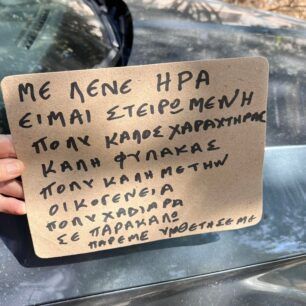 ΜΕ ΛΕΝΕ ΗΡΑ
ΕΙΜΑΙ ΣΤΕΙΡΩΜΕΝΗ
ΠΟΛΥ ΚΑΛΟΣ ΧΑΡΑΧΤΗΡΑΣ
ΚΑΛΗ ΦΥΛΑΚΑΣ
ΠΟΛΥ ΚΑΛΗ ΜΕ ΤΗΝ
ΟΙΚΟΓΕΝΕΙΑ
ΠΟΛΥ ΧΑΔΙΑΡΑ
ΣΕ ΠΑΡΑΚΑΛΩ
ΠΑΡΕΜΕ ΥΙΟΘΕΤΗΣΕ ΜΕ